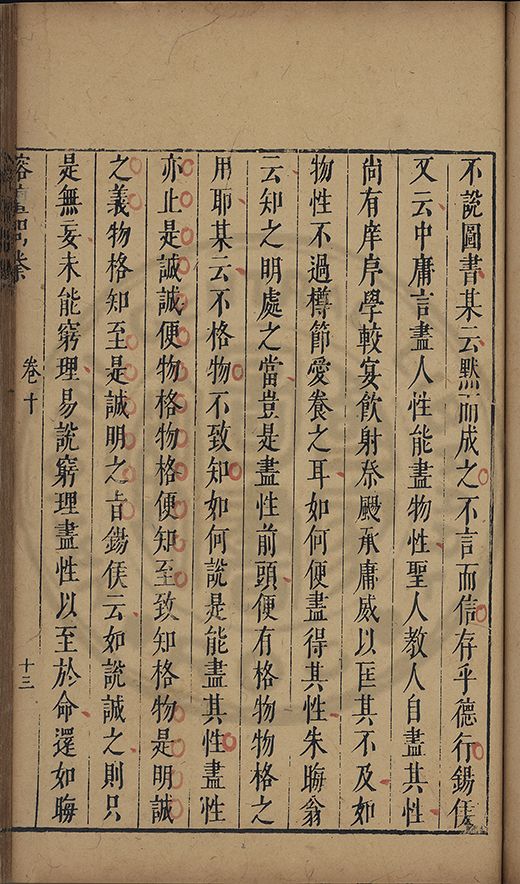 不說圖書某云黙而成之不言而信存乎德行鍚僙
又云中庸言盡人性能盡物性聖人教人自盡其性
尚有庠序學較宴飲射奈颺承庸威以匡其不及如
物性不過樽節愛養之耳如何便盡得其性朱晦翁
云知之明處之當豈是盡性前頭便有格物物格之
用耶某云不格物不致知如何說是能盡其性盡性
亦止是誠誠便物格物格便知至致知格物是明誠
之義物格知至是誠明之旨鍚僙云如說誠之則只
是無妄未能窮理易說窮理盡性以至於命還如晦
卷十
十三